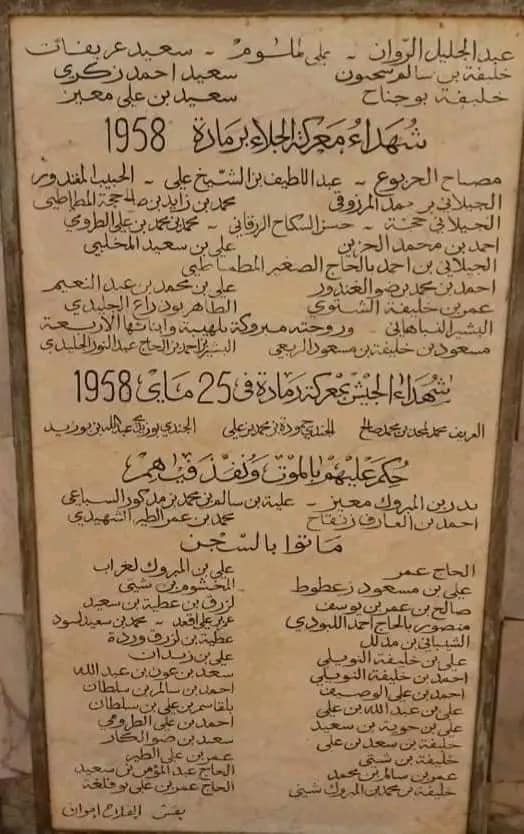 عبد الجليل الزوان - علي ملوم - سعيد عريفات
خليفة بن سالم سحنون سعيد احمد زكري
خليفة بوجناح سعيد بن علي معيز
شهداء معركة الجلاء برمادة 1958
مصباح الجربوع - عبد اللطيف بن الشيخ علي - الحبيب الغندور
الجيلاني بن حمد المرزوقي محمد بن زايد بن حجة المطماطي
الجيلاني حجة - حسن السكاح الرقاني - محمد بن محمد بن علي الطروي
احمد بن محمد الحزين علي بن سعيد المخلبي
الجيلاني بن احمد بالحاج الصغير المطماطي
احمد بن محمد بن ضو الغندور علي بن محمد بن عبد النعيم
عمر بن خليفة الشنوي الطاهر بودراع الجليدي
البشير النباهاني وزوجته مبروكة بلهيبة وابنائها الأربعة
مسعود بن خليفة بن مسعود الربعي البشير بن احمد بن الحاج عبد النور الجليدي
شهداء الجيش بمعركة رمادة في 25 ماي 1958
العريف محمد لمجد بن محمد صالح الجندي حمودة بن محمد بن علي الجندي بوزيد بن عبد الله بن بوزيد
حكم عليهم بالموت ونفذ فيهم
بدر بن المبروك معيز - علية بن سالم بن محمد بن مدكور السباعي
احمد بن العارف زنفاح محمد بن عمر الطير الشهيدي
ماتوا بالسجن
الحاج عمر علي بن المبروك لغراب
علي بن مسعود زعطوط المخشوم بن شيتي
صالح بن عمر بن يوسف لزرق بن عطية بن سعيد
منصور بالحاج احمد اللبودي عزيز علي اقعد - محمد بن سعيد لسود
الشيباني بن مدلل عطية بن لزرق وردة
علي بن خليفة النويلي علي بن زيدان
احمد بن خليفة النويلي سعد بن عون بن عبد الله
احمد بن علي الوصيف احمد بن سالم بن سلطان
علي بن عبد الله بن علي بلقاسم بن علي بن سلطان
علي بن حوية بن سعيد احمد بن علي الطرومي
خليفة بن سعد بن علي سعد بن ضو الكار
خليفة بن شيتي عمر بن علي الطير
عمر بن سالم بن محمد الحاج عبد المؤمن بن سعيد
خليفة بن محمد بن المبروك شيتي الحاج عمر بن علي بوفلغة
بقش الفلاح اخوان